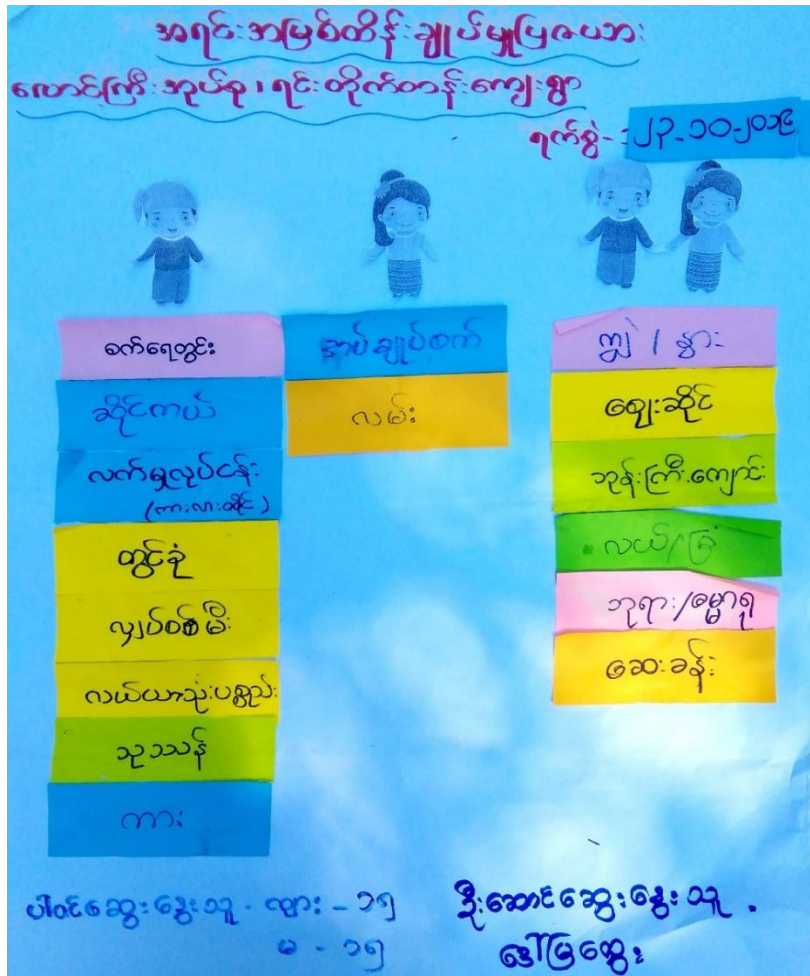 အရင်းအမြစ်ထိန်းချုပ်မှုပြဇယား
လောင်ကြီးအုပ်စု၊ ရင်းတိုက်တန်းကျေးရွာ
ရက်စွဲ - ၂၃-၁၀-၂၀၁၉
စက်ရေတွင်း
ဆိုင်ကယ်
လက်မှုလုပ်ငန်း
(ကားလားထိုင်)
တွင်ခုံ
လျှပ်စစ်မီး
လယ်ယာသုံးပစ္စည်း
သုဿန်
ကား
အပ်ချုပ်စက်
လမ်း
ကျွဲ / နွား
ဈေးဆိုင်
ဘုန်းကြီးကျောင်း
လယ်/ခြံ
ဘုရား/ဓမ္မာရုံ
ဆေးခန်း
ပါဝင်ဆွေးနွေးသူ - ကျား - ၁၅
မ - ၁၅
ဦးဆောင်ဆွေးနွေးသူ -
ဒေါ်မြထွေး